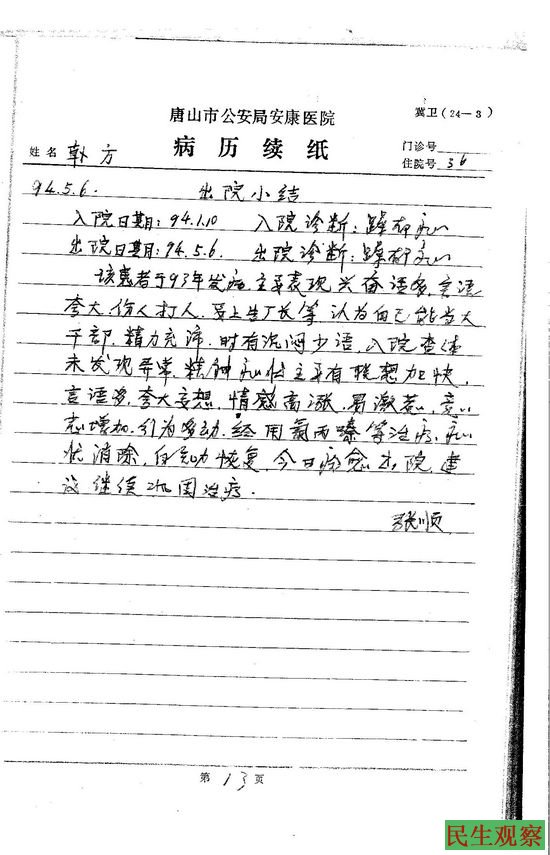 唐山市公安局安康医院
冀卫(24—3)
病历续纸
姓名 韩方
门诊号
住院号 36
94.5.6. 出院小结
入院日期:94.1.10 入院诊断:躁郁症
出院日期:94.5.6. 出院诊断:躁郁症
该患者于93年发病,主要表现兴奋话多,言语
夸大,伤人打人,要上生厂长等,认为自己能当大
干部,精力充沛,时有沉闷少语,入院查体
未发现异常,精神症状主要有联想加快,
言语多,夸大妄想,情感高涨,易激惹,意
志增加,行为多动,经用氯丙嗪等治疗,症
状消除,自知力恢复,今日治愈出院,建
议继续巩固治疗.
张顺
第 13 页
民生观察